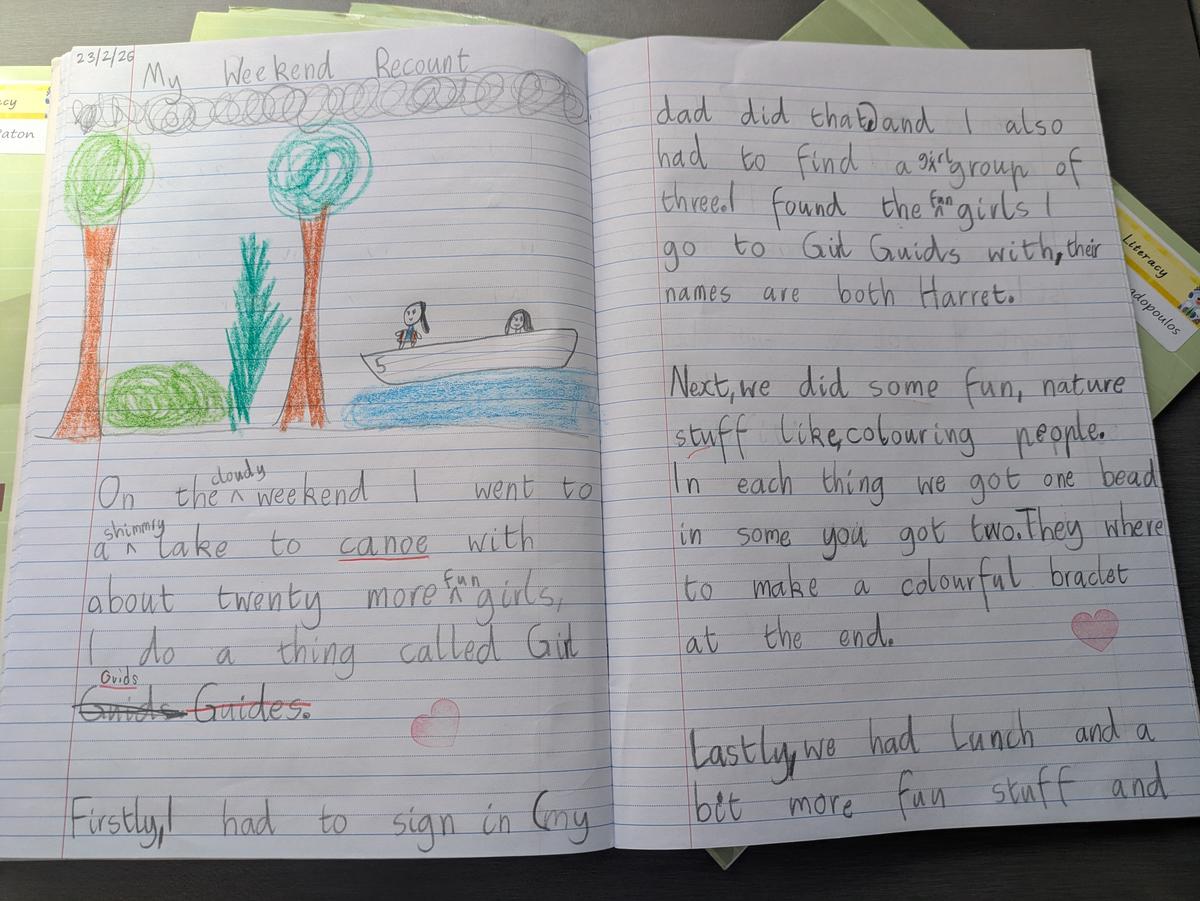 23/2/26
My Weekend Recount
5
On the ^ cloudy weekend I went to
a ^ shimmry lake to canoe with
about twenty more ^ fun girls,
I do a thing called Girl
Guids
Guids Guides.
Firstly, I had to sign in (my
dad did that) and I also
had to find a girl group of
three.I found the ^ fun girls I
go to Girl Guids with, their
names are both Harret.
Next, we did some fun, nature
stuff like, colouring people.
In each thing we got one bead
in some you got two.They where
to make a colourful braclet
at the end.
Lastly, we had Lunch and a
bit more fun stuff and
cy
aton
Literacy
adopoulos